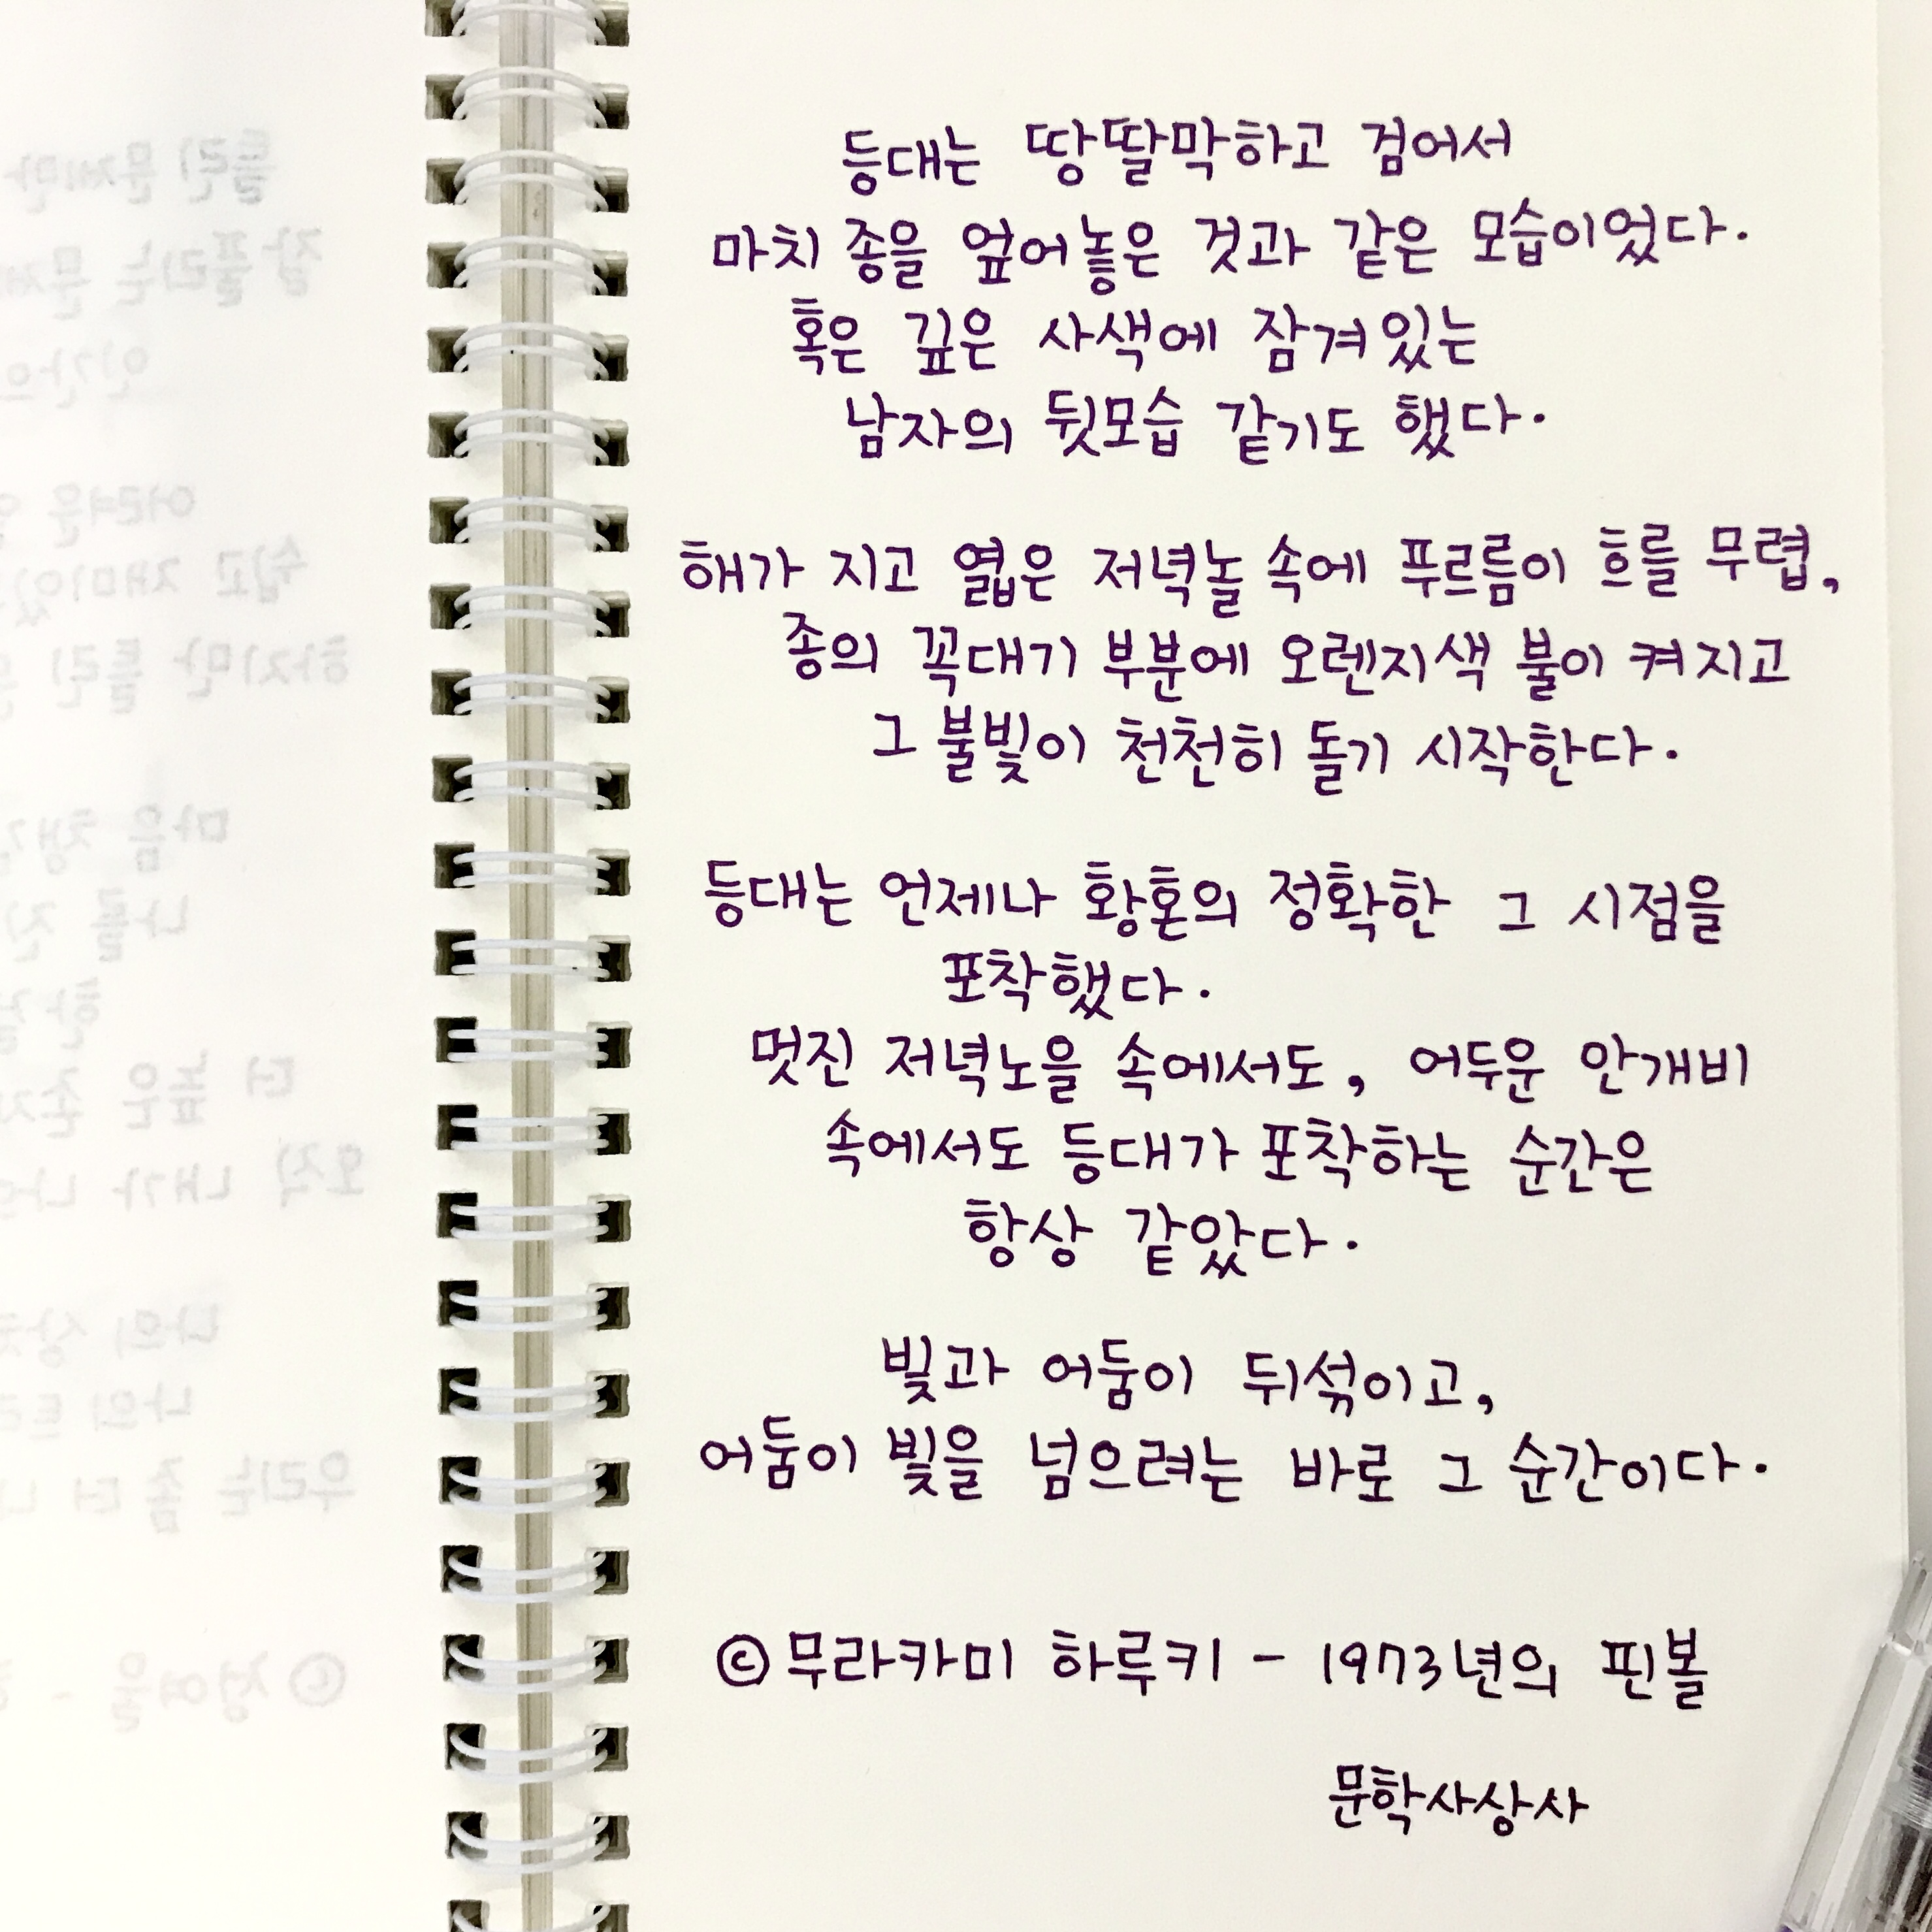 등대는 땅딸막하고 검어서
마치 종을 엎어놓은 것과 같은 모습이었다.
혹은 깊은 사색에 잠겨있는
남자의 뒷모습 같기도 했다.
해가 지고 엷은 저녁놀 속에 푸르름이 흐를 무렵,
종의 꼭대기 부분에 오렌지색 불이 켜지고
그 불빛이 천천히 돌기 시작한다.
등대는 언제나 황혼의 정확한 그 시점을
포착했다.
멋진 저녁노을 속에서도, 어두운 안개비
속에서도 등대가 포착하는 순간은
항상 같았다.
빛과 어둠이 뒤섞이고,
어둠이 빛을 넘으려는 바로 그 순간이다.
©무라카미 하루키 - 1973년의 핀볼
문학사상사